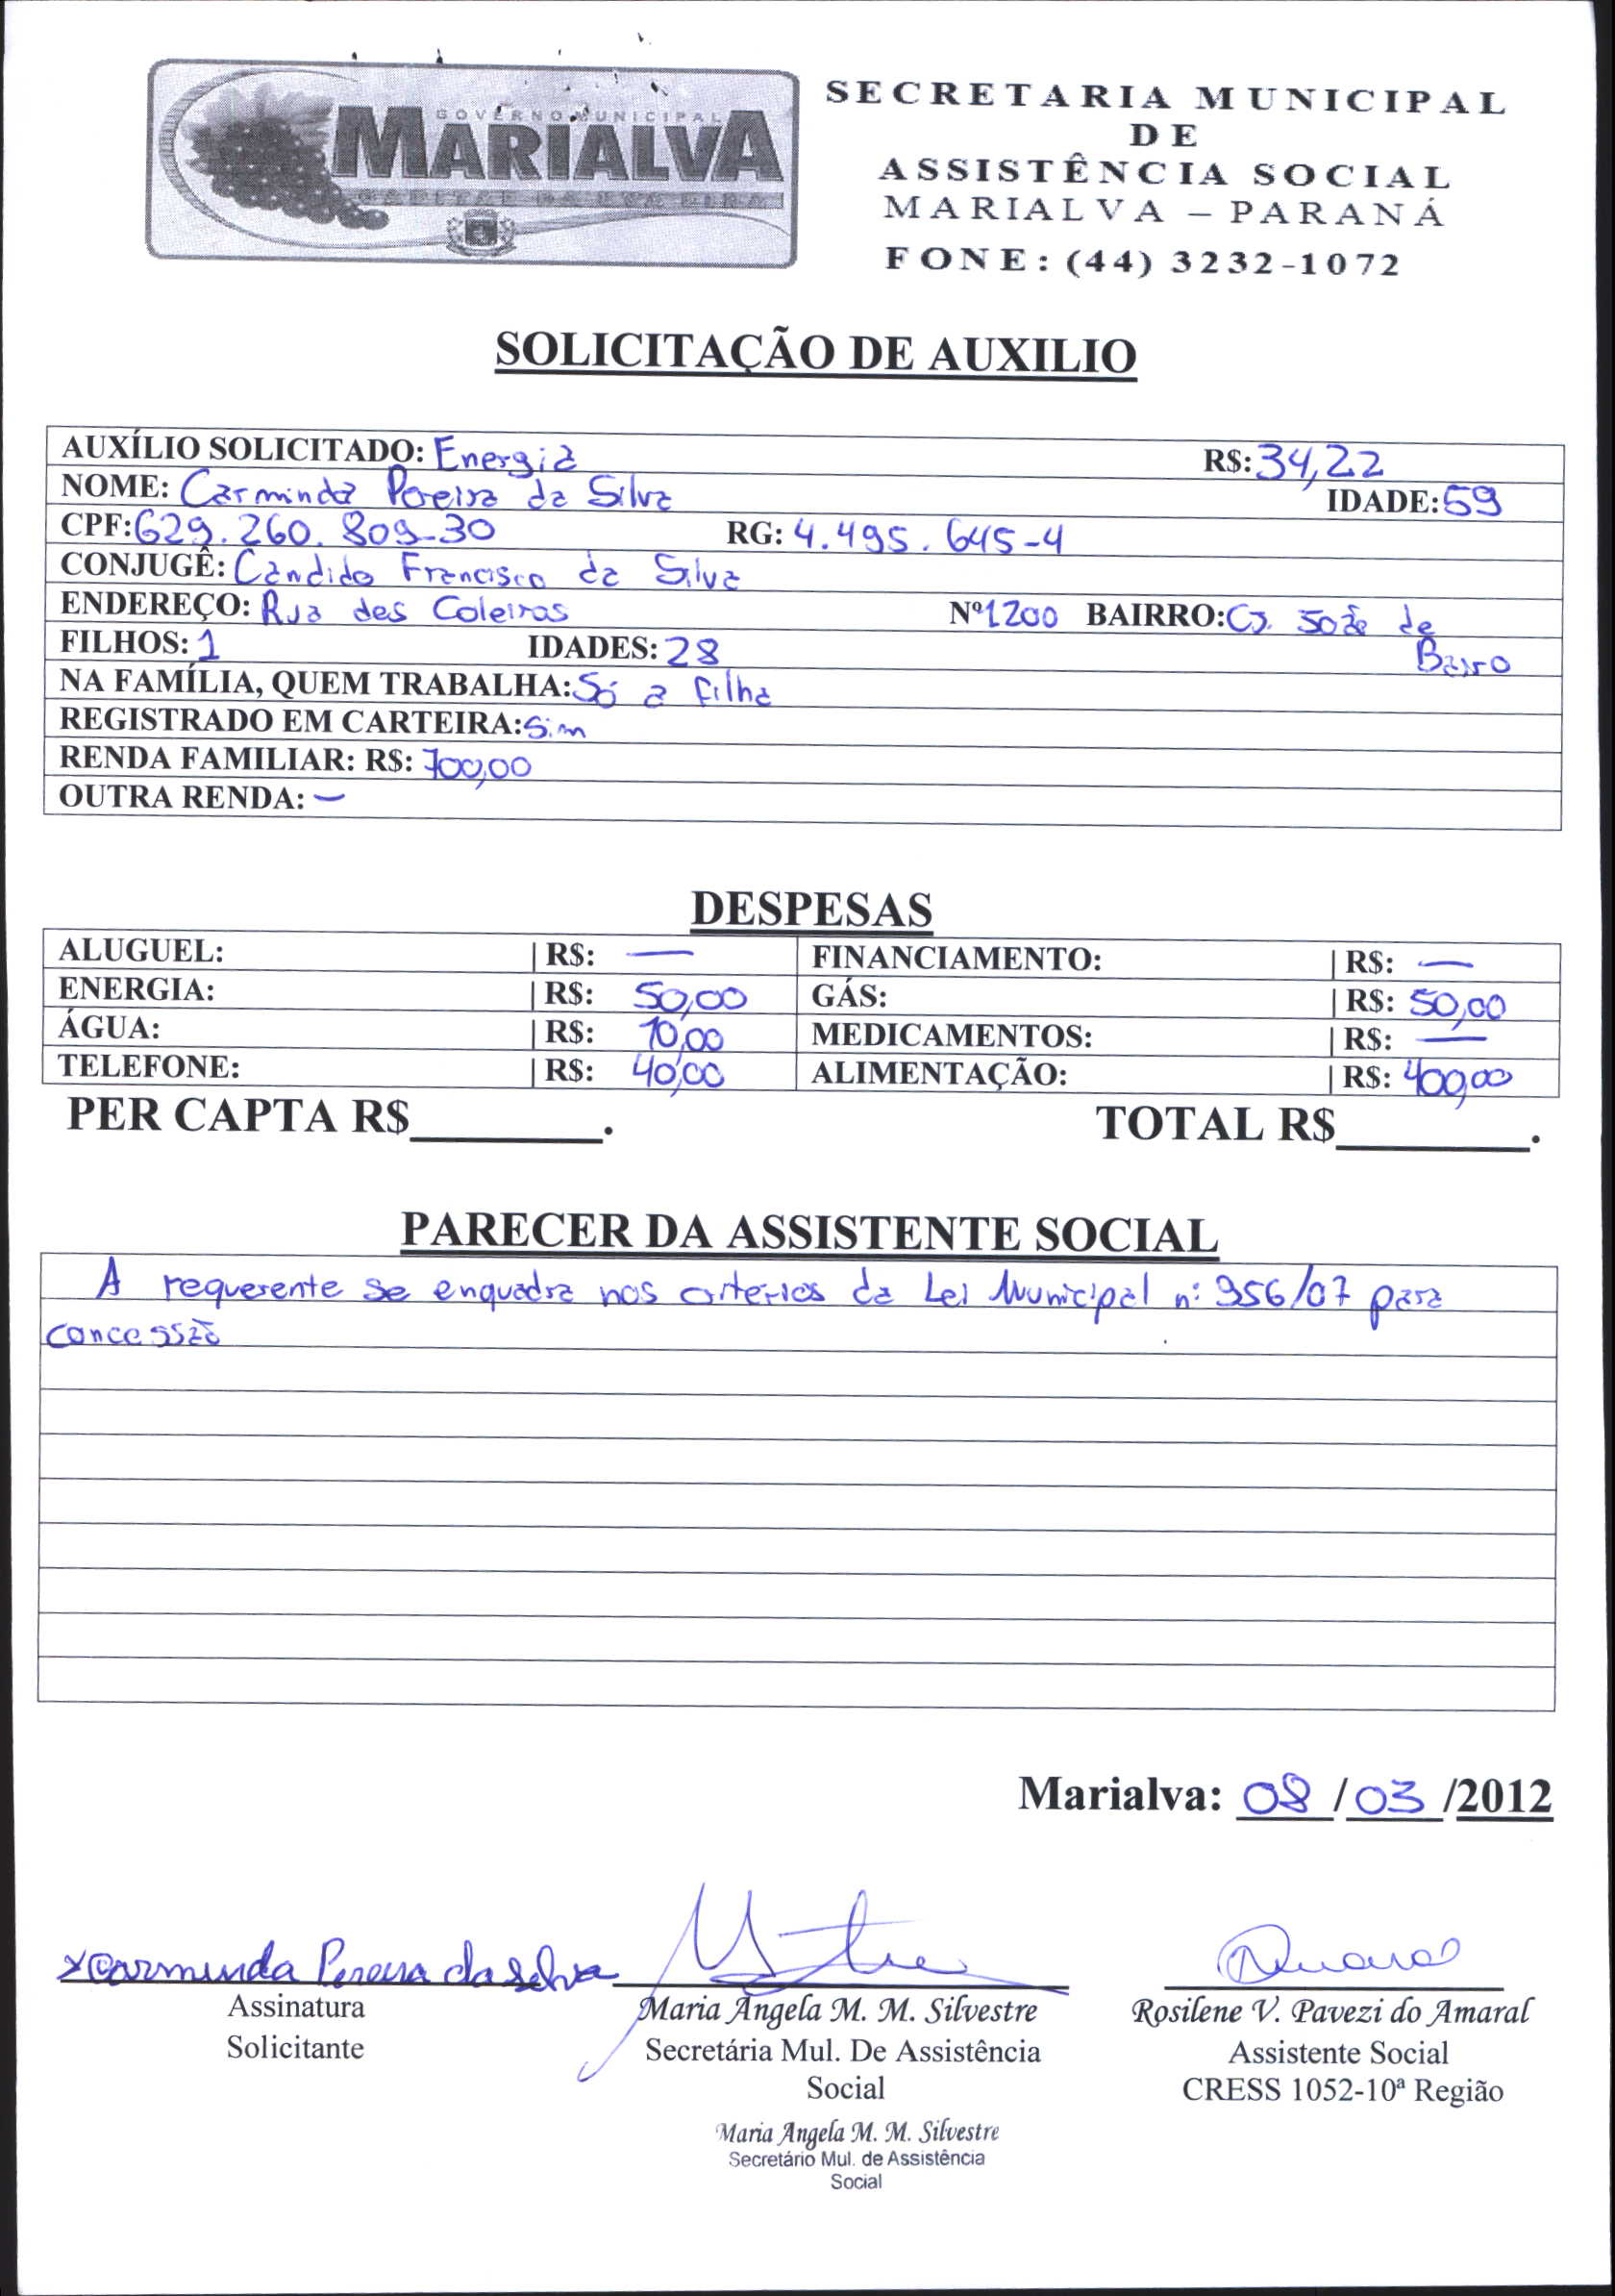 GOVERNO MUNICIPAL
MARIALVA
CAPITAL DA UVA FINA
SECRETARIA MUNICIPAL
DE
ASSISTÊNCIA SOCIAL
MARIALVA – PARANÁ
FONE: (44) 3232-1072
SOLICITAÇÃO DE AUXILIO
AUXÍLIO SOLICITADO: Energia R$: 34,22
NOME: Carminda Pereira da Silva IDADE: 59
CPF: 629.260.809-30 RG: 4.495.645-4
CONJUGÊ: Candido Francisco da Silva
ENDEREÇO: Rua das Coleiras Nº 1200 BAIRRO: CJ. João de
Barro
FILHOS: 1 IDADES: 28
NA FAMÍLIA, QUEM TRABALHA: Só a filha
REGISTRADO EM CARTEIRA: Sim
RENDA FAMILIAR: R$: 700,00
OUTRA RENDA: —
DESPESAS
ALUGUEL: | R$: — FINANCIAMENTO: | R$: —
ENERGIA: | R$: 50,00 GÁS: | R$: 50,00
ÁGUA: | R$: 10,00 MEDICAMENTOS: | R$: —
TELEFONE: | R$: 40,00 ALIMENTAÇÃO: | R$: 400,00
PER CAPTA R$________. TOTAL R$________.
PARECER DA ASSISTENTE SOCIAL
A requerente se enquadra nos critérios da Lei Municipal nº 956/07 para
concessão
Marialva: 08 / 03 /2012
x Carminda Pereira da Selva
Assinatura
Solicitante
Maria Ângela M. M. Silvestre
Secretária Mul. De Assistência
Social
Maria Angela M. M. Silvestre
Secretário Mul. de Assistência
Social
Rosilene V. Pavezi do Amaral
Assistente Social
CRESS 1052-10ª Região